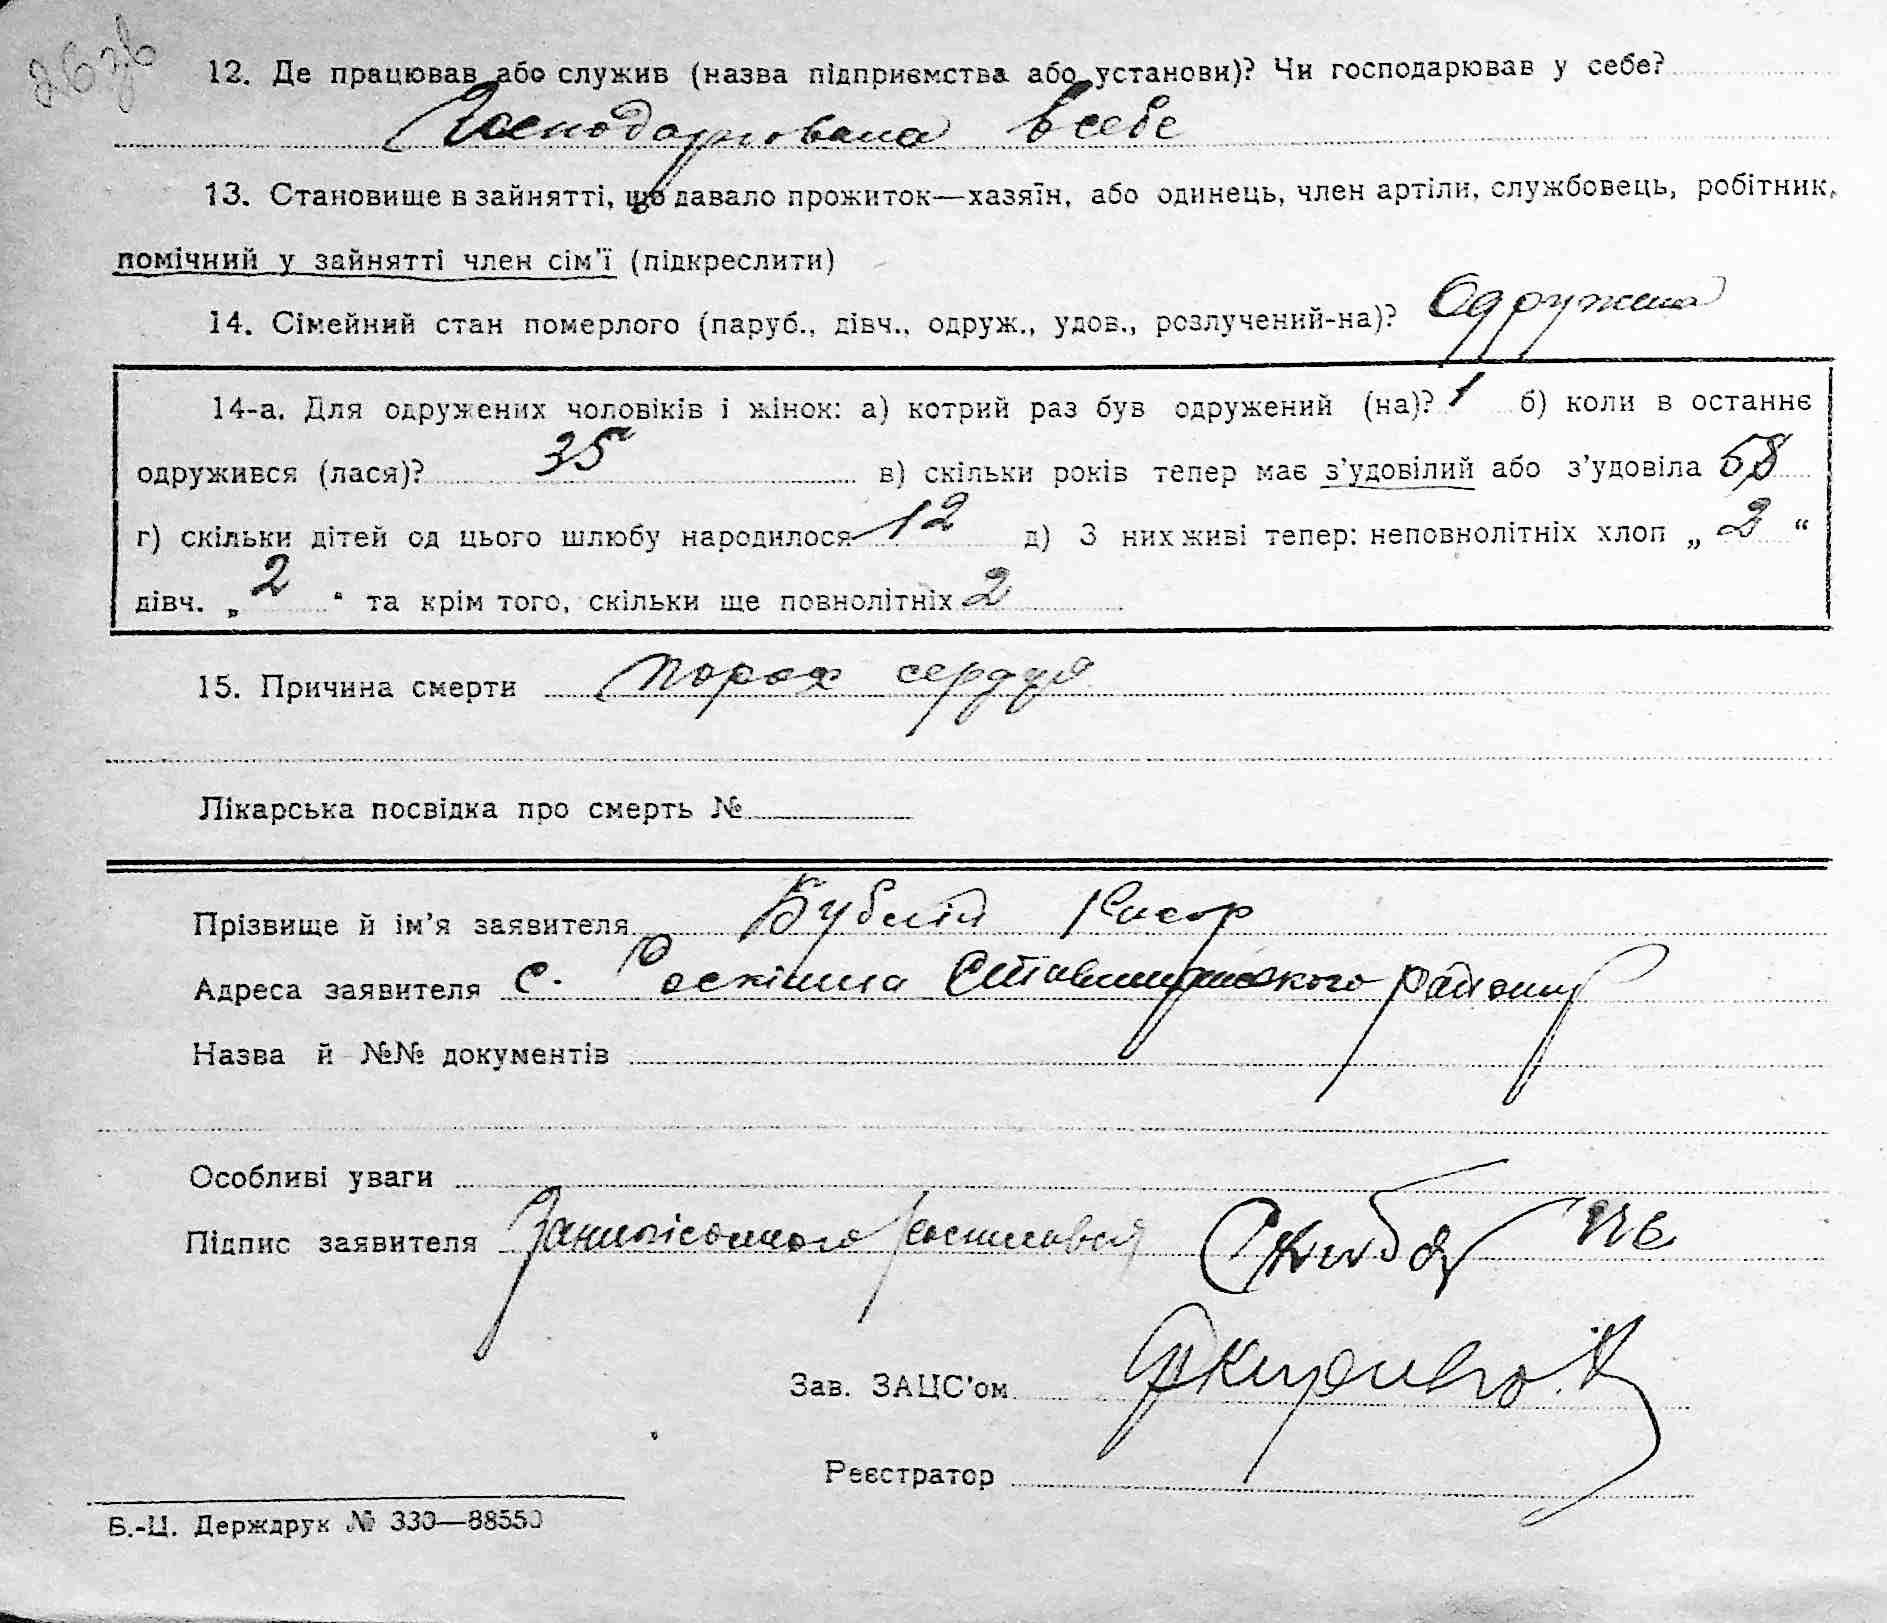 26 зв
12. Де працював або служив (назва підприємства або установи)? Чи господарював у себе?
Господарювала в себе
13. Становище в зайнятті, що давало прожиток—хазяїн, або одинець, член артіли, службовець, робітник,
помічний у зайнятті член сім'ї (підкреслити)
14. Сімейний стан померлого (паруб., дівч., одруж., удов., розлучений-на)? Одружена
14-а. Для одружених чоловіків і жінок: а) котрий раз був одружений (на)? 1 б) коли в останнє
одружився (лася)? 35 в) скільки років тепер має з'удовілий або з'удовіла 58
г) скільки дітей од цього шлюбу народилося 12 д) З них живі тепер: неповнолітніх хлоп „ 2 “
дівч. „ 2 “ та крім того, скільки ще повнолітніх 2
15. Причина смерти порох сердця
Лікарська посвідка про смерть №
Прізвище й ім'я заявителя Бублій
Адреса заявителя с. Роскішна Ставищанського району
Назва й №№ документів
Особливі уваги
Підпис заявителя Скиба
Зав. ЗАЦС'ом
Реєстратор
Б.-Ц. Держдрук № 330—88550